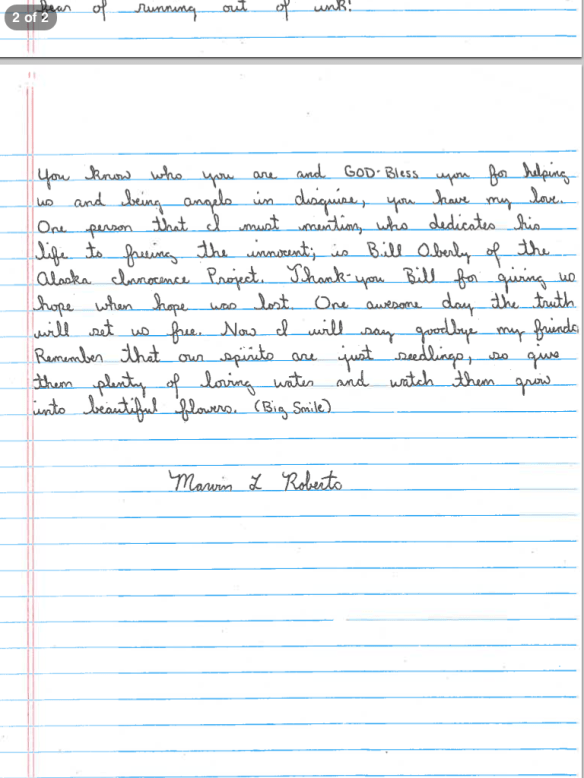 2 of 2
fear of running out of ink!
You know who you are and GOD-Bless you for helping
us and being angels in disguise, you have my love.
One person that I must mention, who dedicates his
life to freeing the innocent; is Bill Oberly of the
Alaska Innocence Project. Thank-you Bill for giving us
hope when hope was lost. One awesome day the truth
will set us free. Now I will say goodbye my friends
Remember that our spirits are just seedlings, so give
them plenty of loving water and watch them grow
into beautiful flowers. (Big Smile)
Marvin L Roberts